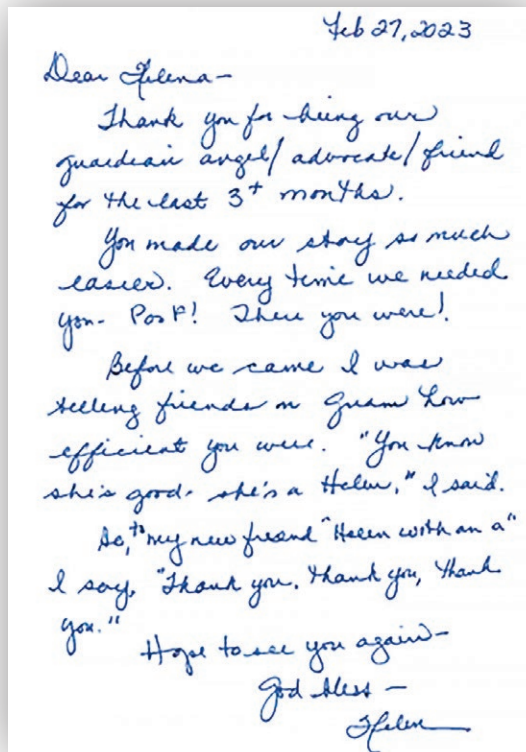 Feb 27, 2023
Dear Helena-
Thank you for being our
guardian angel/advocate/friend
for the last 3+ months.
You made our stay so much
easier. Every time we needed
you- Poof! There you were!
Before we came I was
telling friends on Guam how
efficient you were. "You know
she's good- she's a Helen," I said.
So, to my new friend "Helen with an a"
I say, "Thank you, thank you, thank
you."
Hope to see you again-
God bless-
Helen